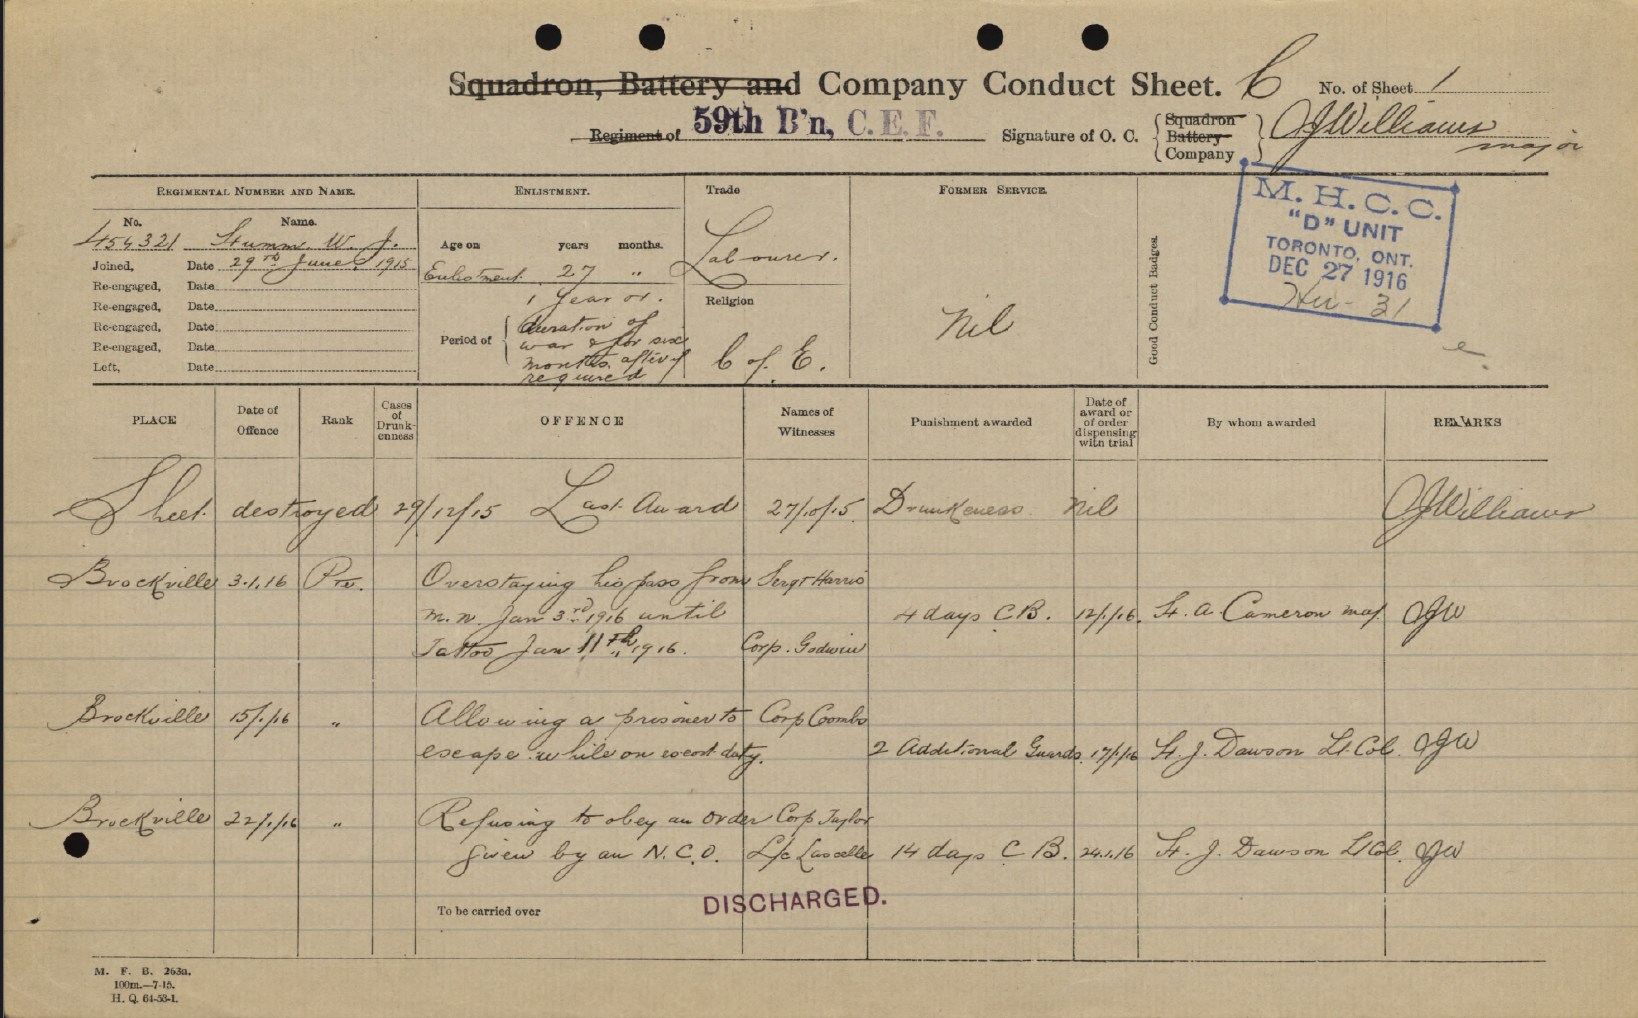 Squadron, Battery and Company Conduct Sheet. C No. of Sheet 1
Regiment of 59th B'n, C.E.F. Signature of O. C. { Squadron Battery Company } OJWilliams
major
REGIMENTAL NUMBER AND NAME.
No. Name.
454321 Stumm. W. J.
Joined, Date 29th June, 1915
Re-engaged, Date
Re-engaged, Date
Re-engaged, Date
Re-engaged, Date
Left, Date
ENLISTMENT.
Age on years months.
Enlistment 27 "
Period of { 1 Year or.
duration of
war & for six
months after if
required
Trade
Labourer.
Religion
C of. E.
FORMER SERVICE.
Nil
Good Conduct Badges.
M. H. C. C.
"D" UNIT
TORONTO, ONT.
DEC 27 1916
31
PLACE
Date of Offence
Rank
Cases of Drunk-enness
OFFENCE
Names of Witnesses
Punishment awarded
Date of award or of order dispensing with trial
By whom awarded
REMARKS
Sheet destroyed 29/12/15 Last Award 27/10/15 Drunkeness Nil OJWilliams
Brockville 3.1.16 Pte. Overstaying his pass from Sergt Harris
m.n. Jan 3rd 1916 until 4 days C B. 12/1/16. A. Cameron maj OJW
Tattoo Jan 11th 1916. Corp. Godwin
Brockville 15/1/16 " Allowing a prisoner to Corp Coombs
escape while on escort duty. 2 Additional Guards. 17/1/16 J. Dawson Lt. Col. OJW
Brockville 22/1/16 " Refusing to obey an order Corp Taylor
given by an N.C.O. L/c Lascelle 14 days C B. 24.1.16 J. Dawson Lt Col. OJW
To be carried over
DISCHARGED.
M. F. B. 263a.
100m.—7-15.
H. Q. 64-53-1.